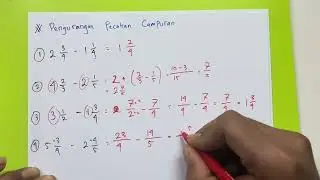 ※ Pengurangan Pecahan Campuran
① 2 3/4 - 1 1/4 = 1 2/4
② 4 2/3 - 2 1/5 = 2 + (2/3 - 1/5) = 10-3/15 = 7/
2
③ 3 1/2 - 1 3/4 = 7/2 - 7/4 = 14/4 - 7/4 = 7/4 = 1 3/4
④ 5 3/4 - 2 4/5 = 23/4 - 14/5 =